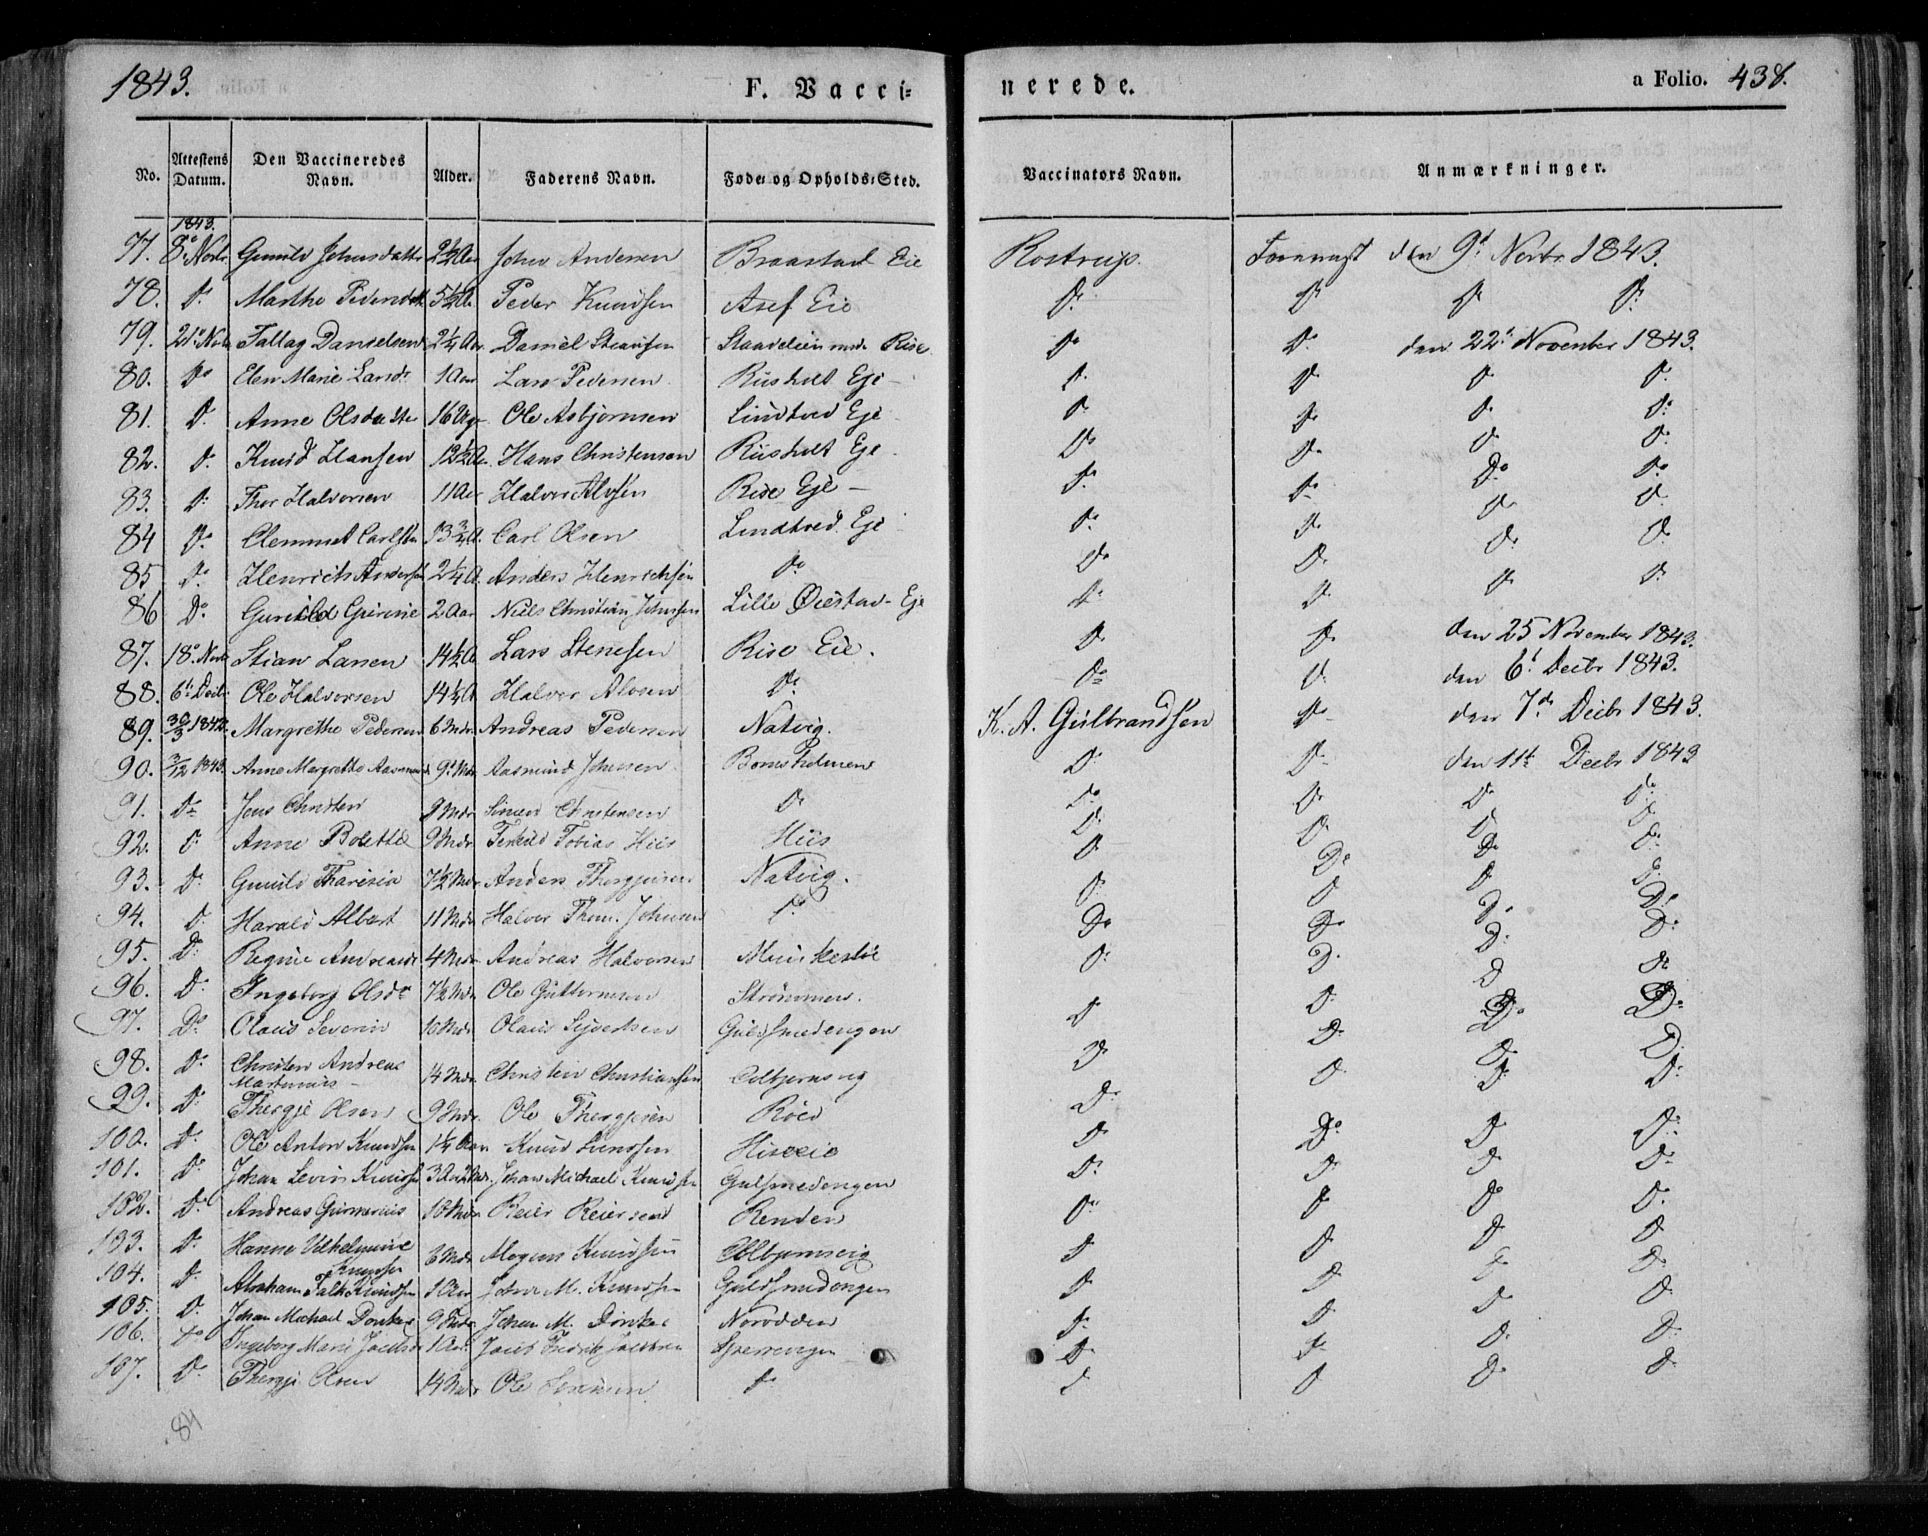 1843. F. Vacci= nerede. a Folio. 438.
No. Attestens Datum. Den Vaccineredes Navn. Alder. Faderens Navn. Føde= og Opholds=Sted. Vaccinators Navn. Anmærkninger.
1843.
77. 8de Novbr. Gunild Johnsdatter 2½ Aar John Andersen Braastad Eie Rostrup. Forevist den 9d. Novbr 1843.
78. Do Marthe Pedersdatter 5½ Aar Peder Knudsen Asef Eie Do Do Do Do
79. 21de Novbr Tallag Danielsen 2¼ Aar Daniel Stiansen Rise Do Do den 22d. November 1843.
80. Do Elen Marie Larsdr 1 Aar Lars Pedersen Riisholt Eje Do Do Do Do
81. Do Anne Olsdatter 16 Uger Ole Asbjørnsen Lindtved Eje Do Do Do Do
82. Do Knud Hansen 12½ Aar Hans Christensen Riisholt Eje Do Do Do Do
83. Do Thor Halvorsen 11 Aar Halvor Alvsen Rise Eje Do Do Do Do
84 Do Clemmet Carlsen 13 A. Carl Olsen Lindtved Eje Do Do Do Do
85 Do Henrich Andersen 2¼ A. Anders Henrichsen Do Do Do Do Do
86 Do Gunild Gurine 2 Aar Niels Christian Johnsen Lille Øiestad Eje Do Do Do Do
87. 18de Novbr Stian Larsen 14½ A Lars Stensen Rise Eie. Do Do den 25 November 1843.
88. 6te Decbr Ole Halvorsen 14½ A Halvor Alvsen Do Do Do den 6t. Decbr 1843.
89. 30/3 1842. Margrethe Pedersen 6 Mdr. Andreas Pedersen Natvig. K. A. Gulbrandsen Do den 7de Decbr 1843.
90. 3/12 1843. Anne Margrethe Aasmunds 9 Mdr Aasmund Johnsen Bomsholmen Do Do den 11te Decbr 1843
91. Do Jens Christen 9 Mdr Simon Christensen Do Do Do Do Do
92. Do Anne Bolette 9 Mdr Terkild Tobias Hiis Hiis Do Do Do Do
93. Do Gunild Tharisia 7½ Mdr Anders Thergjersen Natvig. Do Do Do Do
94. Do Harald Albert 11 Mdr Halvor Thom. Johnsen Do Do Do Do Do
95. Do Regine Andreasdr 4 Mdr Andreas Halvorsen Do Do Do Do
96. Do Ingeborg Olsdr 7½ Mdr Ole Guttormsen Strømmen. Do Do Do Do
97. Do Olaus Severin 10 Mdr Olaus Syvertsen Guldsmedengen Do Do Do Do
98. Do Christen Andreas Martinius 14 Mdr Christen Christiansen Colbjørnsvig Do Do Do Do
99. Do Thergje Olsen 9 Mdr. Ole Thergjesen Røed Do Do Do Do
100. Do Ole Anton Knudsen 1½ Aar Knud Hiseeie Do Do Do Do
101. Do Johan Levin Knudsen Johan Michael Knudsen Gulsmedengen Do Do Do Do
102. Do Andreas Gunnerius 10 Mdr Reier Reiersen Renden Do Do Do Do
103. Do Hanne Vilhelmine Knudsen 6 Mdr Mogens Knudsen Colbjørnsvig Do Do Do Do
104. Do Abraham Falk Knudsen 1 Aar Johan M. Knudsen Guldsmedengen Do Do Do Do
105. Do Johan Michael Donker Johan M. Donker Norodden Do Do Do Do
106. Do Ingeborg Marie Jacobsdr 1 Aar Jacob Fredrik Jacobsen Do Do Do Do
107. Do Thergje Olsen 14 Mdr Ole Do Do Do Do Do
84